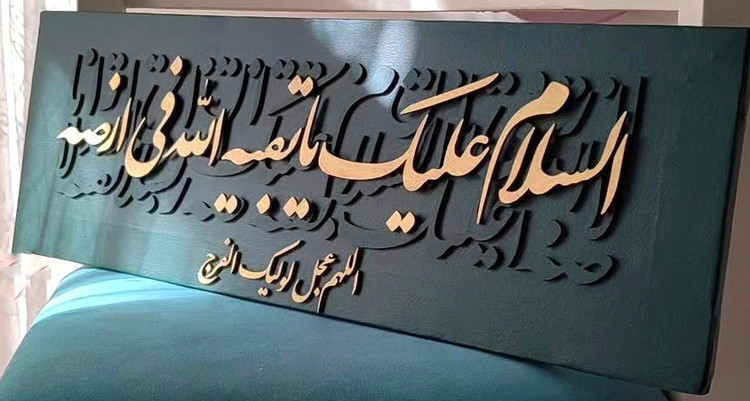 السلام علیک یا بقیه الله فی ارضه
اللهم عجل لولیک الفرج